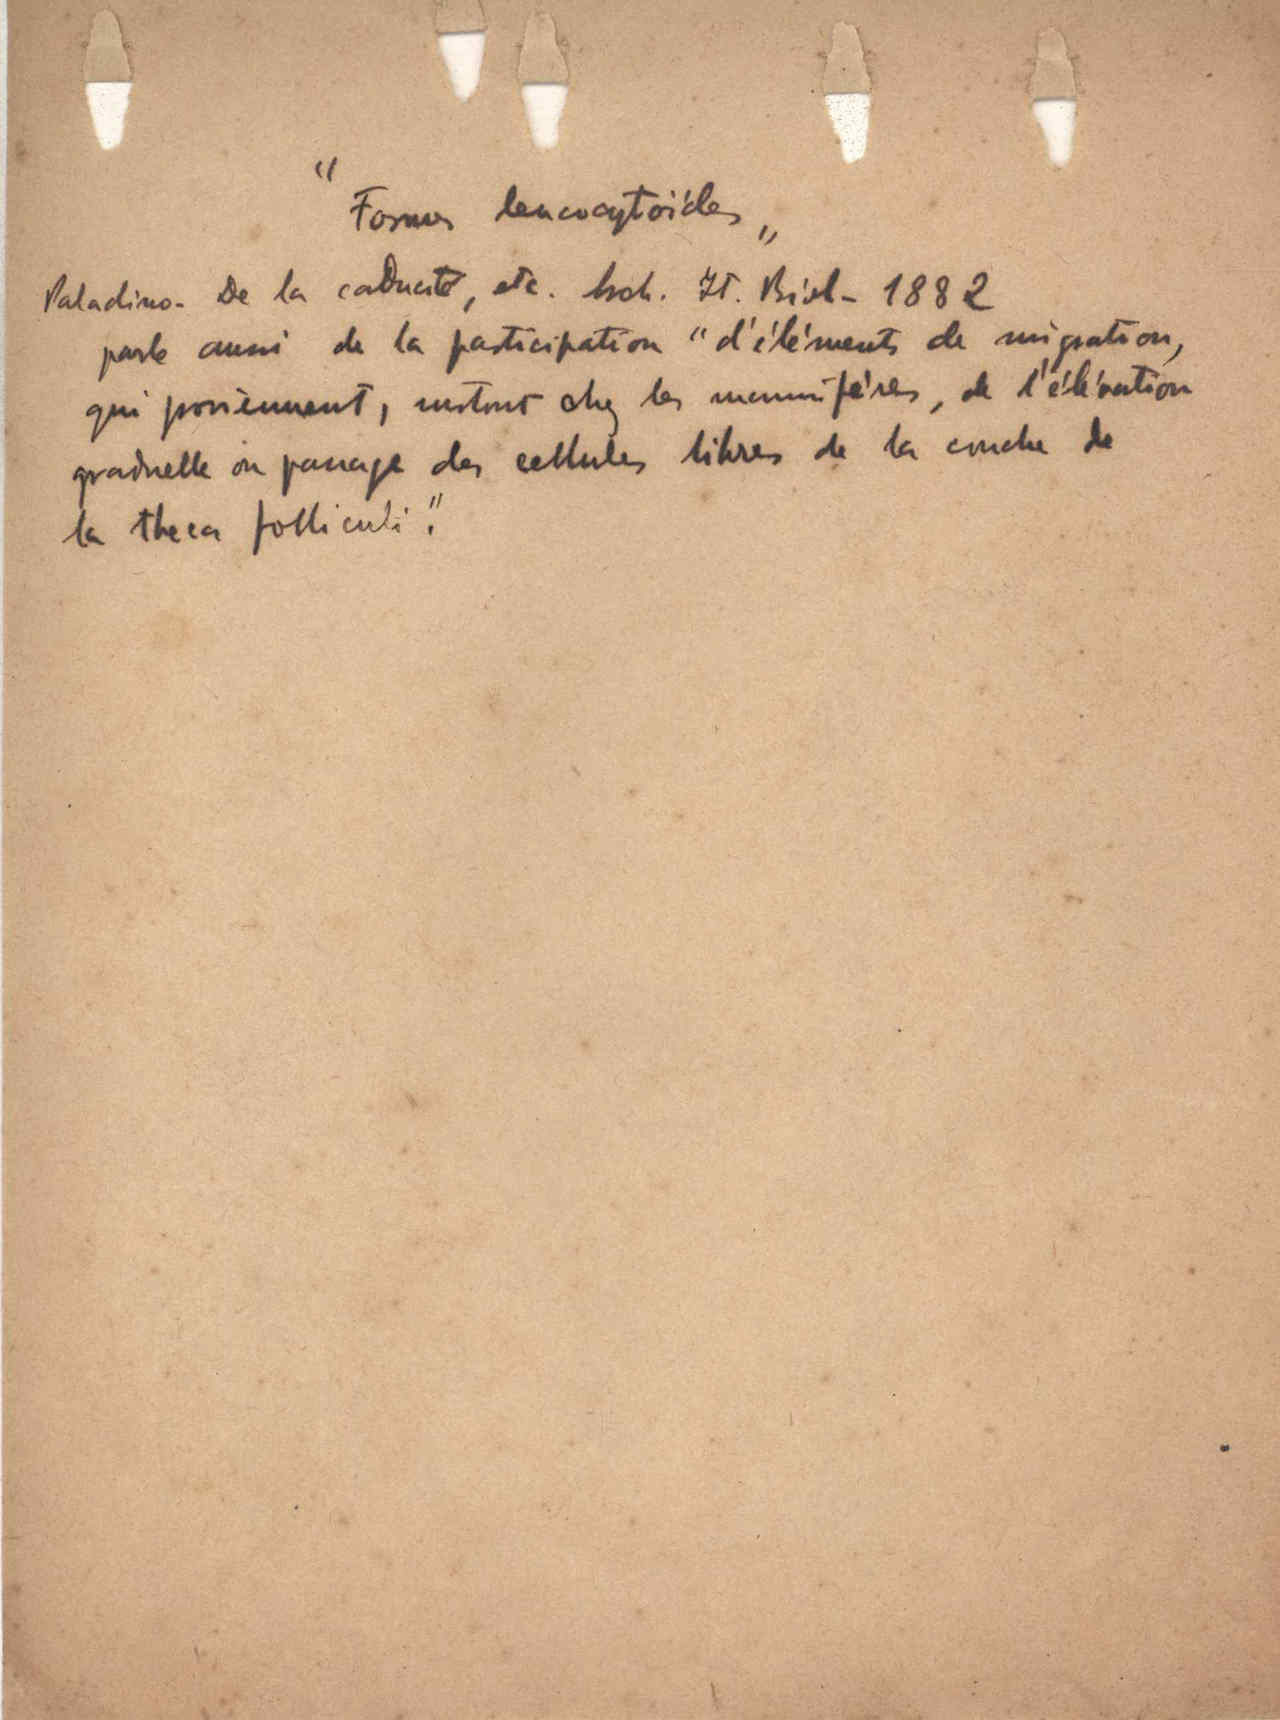 "Formes leucocytoïdes"
Paladino - De la caducité, etc. Arch. It. Biol - 1882
parle aussi de la participation "d'éléments de migration,
qui proviennent, surtout chez les mammifères, de l'élévation
graduelle ou passage des cellules libres de la couche de
la theca folliculi".